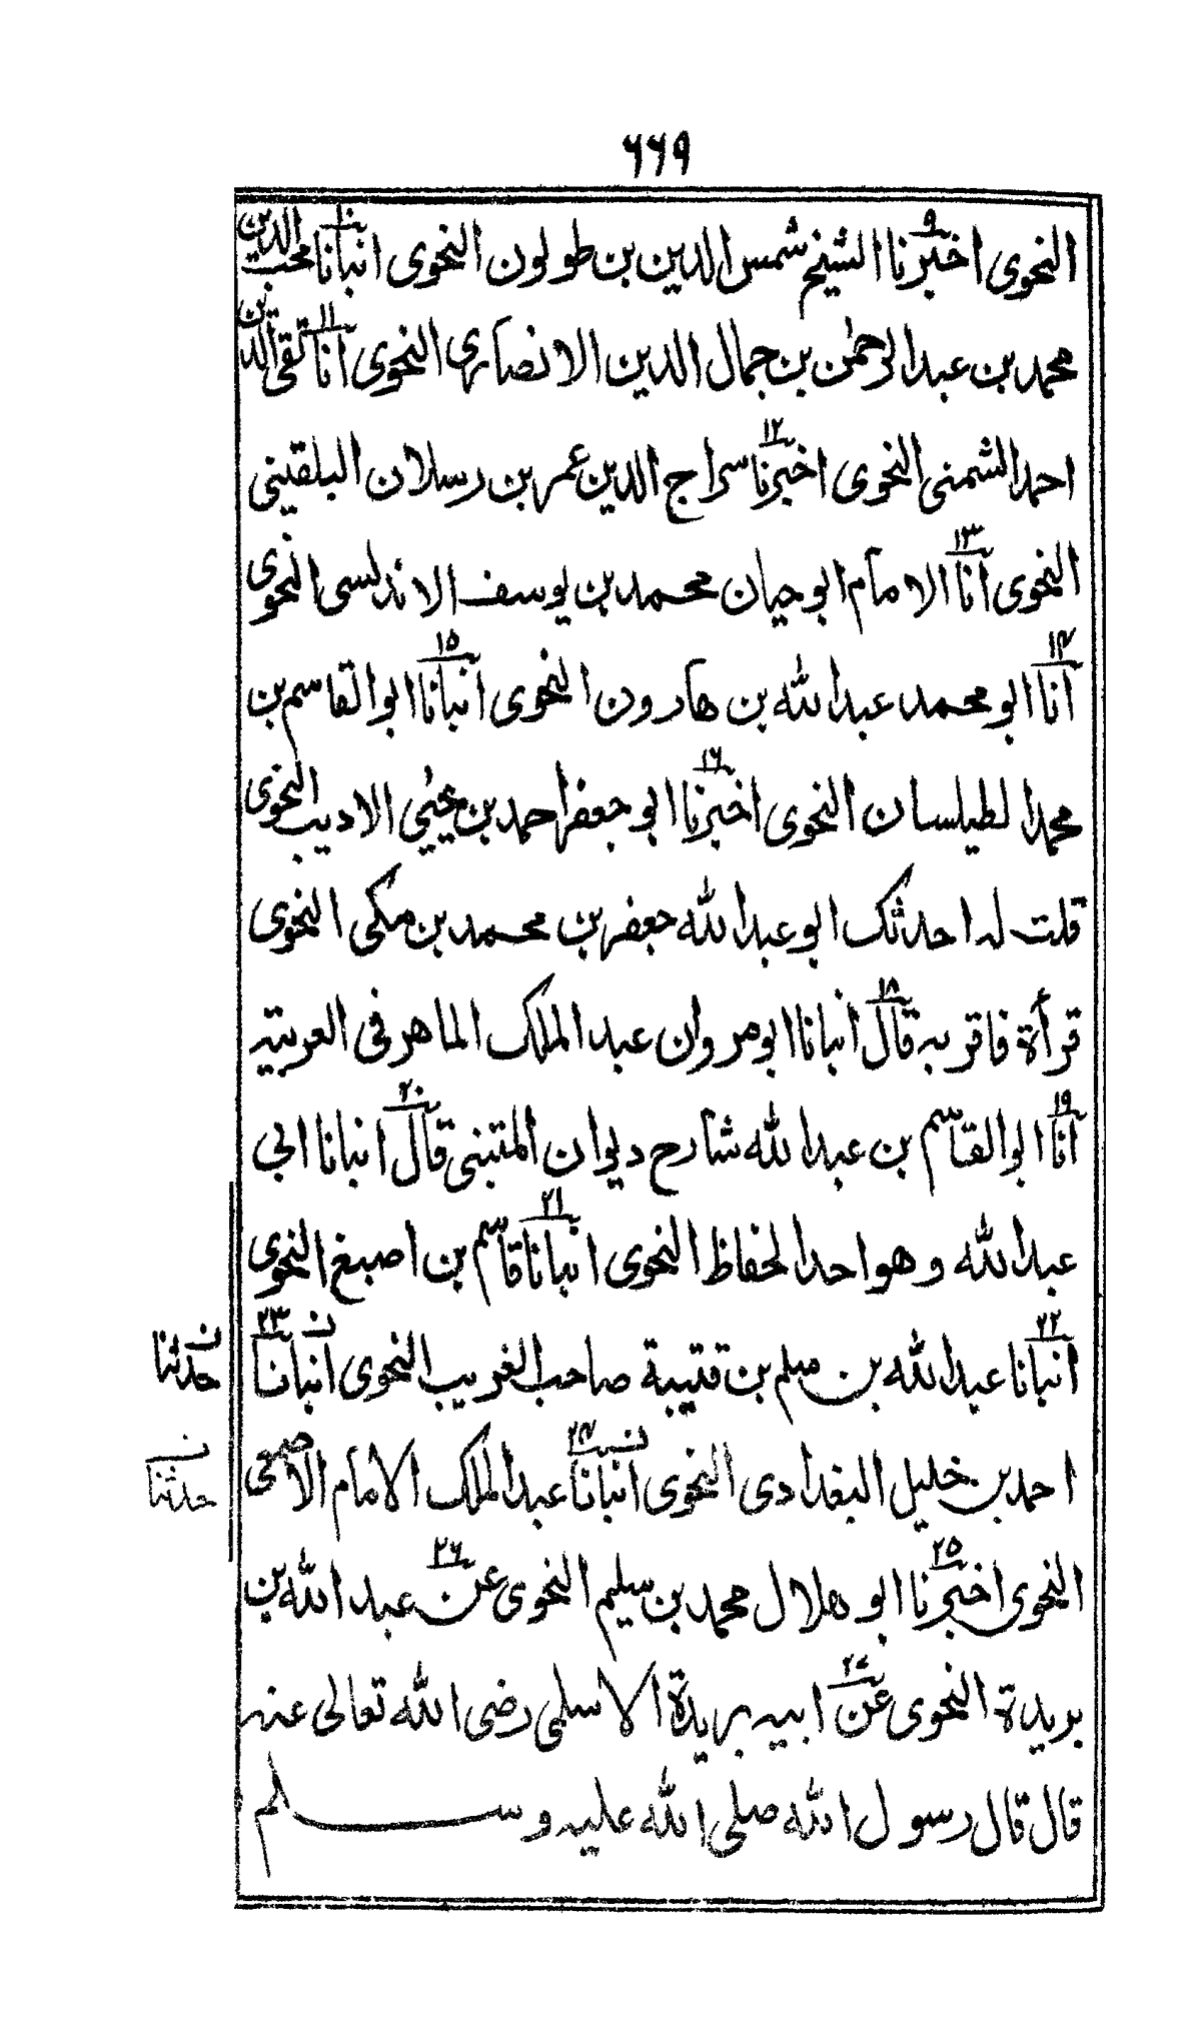 ۶۶۹
النحوی اخبرنا۹ الشیخ شمس الدین بن طولون النحوی انبانا۱۰ محب الدین
محمد بن عبدالرحمٰن بن جمال الدین الانصاری النحوی انا۱۱ تقی الدین
احمد الشمنی النحوی اخبرنا۱۲ سراج الدین عمر بن رسلان البلقینی
النحوی انا۱۳ الامام ابوحیان محمد بن یوسف الاندلسی النحوی
انا۱۴ ابومحمد عبداللّٰه بن هارون النحوی انبانا۱۵ ابوالقاسم بن
محمد الطیلسان النحوی اخبرنا۱۶ ابو جعفر احمد بن یحیٰی الادیب النحوی
قلت له احدثک ابو عبداللّٰه جعفر بن محمد بن مکی النحوی
قرأة فاقربه قال۱۸ انبانا ابومروان عبدالملک الماهر فی العربیة
انا۱۹ ابوالقاسم بن عبداللّٰه شارح دیوان المتنبی قال۲۰ انبانا ابی
عبداللّٰه وهو احد الحفاظ النحوی انبانا۲۱ قاسم بن اصبغ النحوی
انبانا۲۲ عبداللّٰه بن مسلم بن قتیبة صاحب الغریب النحوی انبانا۲۳ ن
ن حدثنا
احمد بن خلیل البغدادی النحوی انبانا۲۴ ن عبدالملک الامام الاصمعی
ن حدثنا
النحوی اخبرنا۲۵ ابو هلال محمد بن سلیم النحوی عن۲۶ عبد اللّٰه بن
بریدة النحوی عن۲۷ ابیه بریدة الاسلمی رضی اللّٰه تعالی عنه
قال قال رسول اللّٰه صلی اللّٰه علیه وسلم